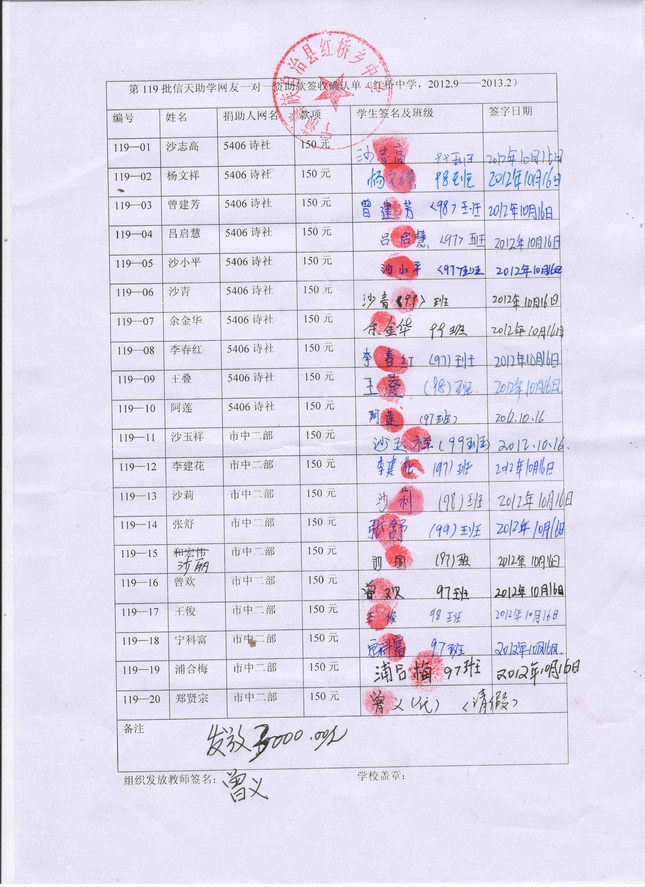 自治县红桥乡中
第119批信天助学网友一对一资助款签收确认单（红桥中学，2012.9——2013.2）
编号 姓名 捐助人网名 款项 学生签名及班级 签字日期
119—01 沙志高 5406诗社 150元 沙志高 2012年10月15日
119—02 杨文祥 5406诗社 150元 杨文祥 98班 2012年10月16日
119—03 曾建芳 5406诗社 150元 曾建芳 <98>班 2012年10月16日
119—04 吕启慧 5406诗社 150元 吕启慧 <97>班 2012年10月16日
119—05 沙小平 5406诗社 150元 沙小平 <97>班 2012年10月16日
119—06 沙青 5406诗社 150元 沙青《99》班 2012年10月16日
119—07 余金华 5406诗社 150元 余金华 99班 2012年10月16日
119—08 李春红 5406诗社 150元 李春红 (97)班 2012年10月16日
119—09 王叠 5406诗社 150元 王叠 (98)班 2012年10月16日
119—10 阿莲 5406诗社 150元 阿莲 (97班) 2012.10.16
119—11 沙玉祥 市中二部 150元 沙玉祥 (99班) 2012.10.16
119—12 李建花 市中二部 150元 李建花 (97)班 2012年10月16日
119—13 沙莉 市中二部 150元 沙利 (98)班 2012年10月16日
119—14 张舒 市中二部 150元 张舒 (99)班 2012年10月16日
119—15 和宏伟 沙丽 市中二部 150元 (97)班 2012年10月16日
119—16 曾欢 市中二部 150元 曾欢 97班 2012年10月16日
119—17 王俊 市中二部 150元 王俊 98班 2012年10月16日
119—18 宁科富 市中二部 150元 宁科富 97班 2012年10月16日
119—19 浦合梅 市中二部 150元 浦合梅 97班 2012年10月16日
119—20 郑贤宗 市中二部 150元 曾义(代) <请假>
备注
发放3000.00元
组织发放教师签名： 学校盖章：
曾义